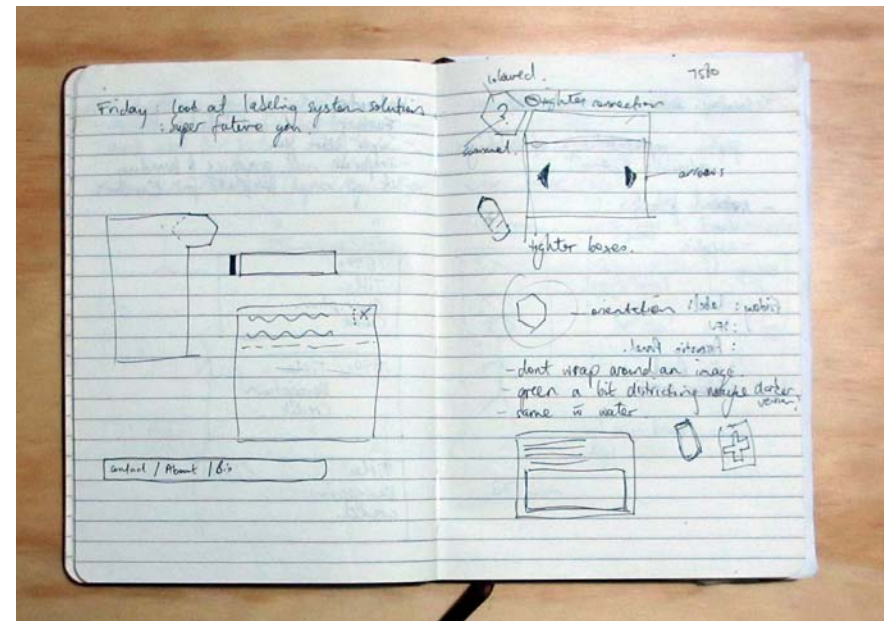 Friday : Look at labeling system solutions.
: Super future you.
contact / About / Bio
7580
tighter connection
arrows
tighter boxes.
- orientation
- dont wrap around an image.
- green a bit districting maybe darker
version?
- same w water.